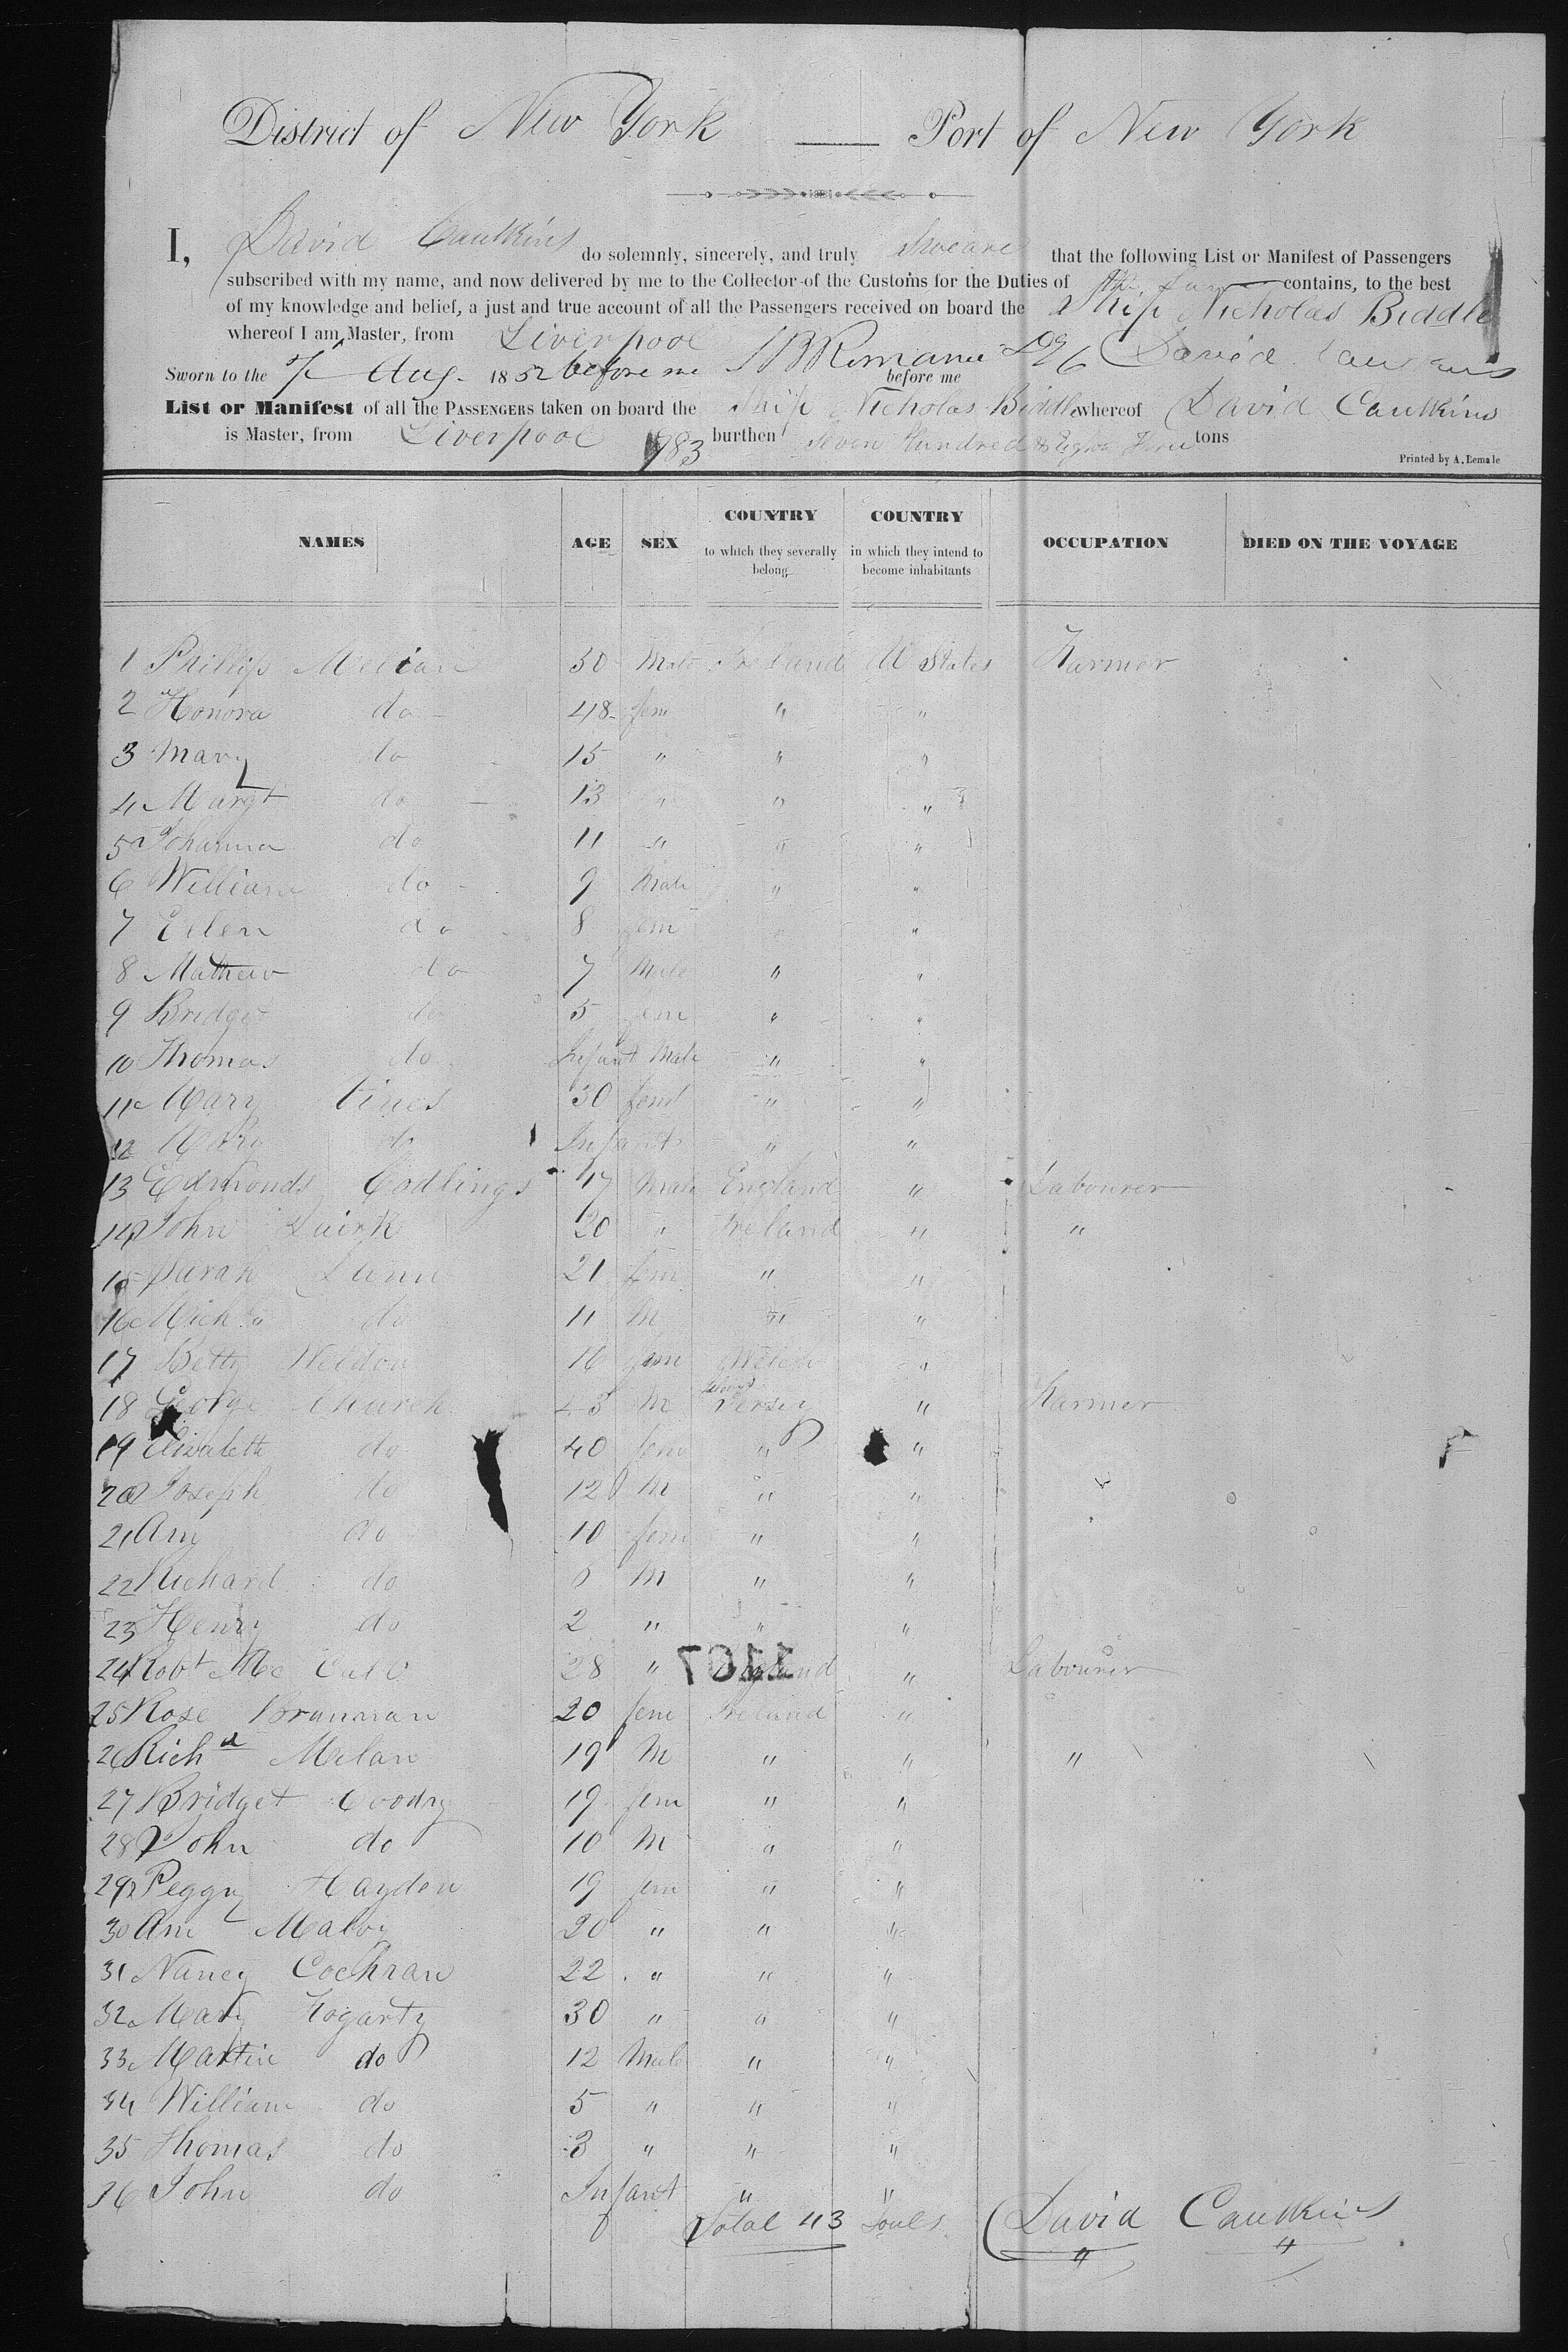 District of New York — Port of New York
I, David Caulkins do solemnly, sincerely, and truly Sweare that the following List or Manifest of Passengers
subscribed with my name, and now delivered by me to the Collector of the Customs for the Duties of contains, to the best
of my knowledge and belief, a just and true account of all the Passengers received on board the Ship Nicholas Biddle
whereof I am Master, from Liverpool
Sworn to the 7 Aug. 1852 before me before me David Caulkins
List or Manifest of all the PASSENGERS taken on board the Ship Nicholas Biddle whereof David Caulkins
is Master, from Liverpool 783 burthen Seven Hundred & tons
Printed by A. Lemale
NAMES AGE SEX COUNTRY to which they severally belong COUNTRY in which they intend to become inhabitants OCCUPATION DIED ON THE VOYAGE
1 Phillip Melean 50 Male Ireland U States Farmer
2 Honora do 48 fem " "
3 Mary do 15 " " "
4 Margt do 13 " " "
5 Johanna do 11 " " "
6 William do 9 Male " "
7 Ellen do 8 fem "
8 Mathew do 7 Male " "
9 Bridget do 5 fem " "
10 Thomas do Infant Male " "
11 Mary 30 fem " "
12 Mary do Infant " "
13 Edmonds Codlings 17 Male England " Labourer
14 John Quirk 20 " Ireland " "
15 Sarah 21 fem " "
16 Mich do 11 M " "
17 Betty Weldon 16 fem Welch "
18 George Church 43 M Jersey " Farmer
19 Elizabeth do 40 fem " "
20 Joseph do 12 M " "
21 Ann do 10 fem " "
22 Richard do M " "
23 Henry do 2 " " "
24 Robt Mc 28 " England " Labourer
1107
25 Rose Brannan 20 fem Ireland "
26 Richd Melan 19 M " " "
27 Bridget Coody 19 fem " "
28 John do 10 M " "
29 Peggy Hayden 19 fem " "
30 Ann Maloy 20 " " "
31 Nancy Cochran 22 " " "
32 Mary Fogarty 30 " " "
33 Martin do 12 Male " "
34 William do 5 " " "
35 Thomas do 3 " " "
36 John do Infant " "
Total 43 Souls David Caulkins